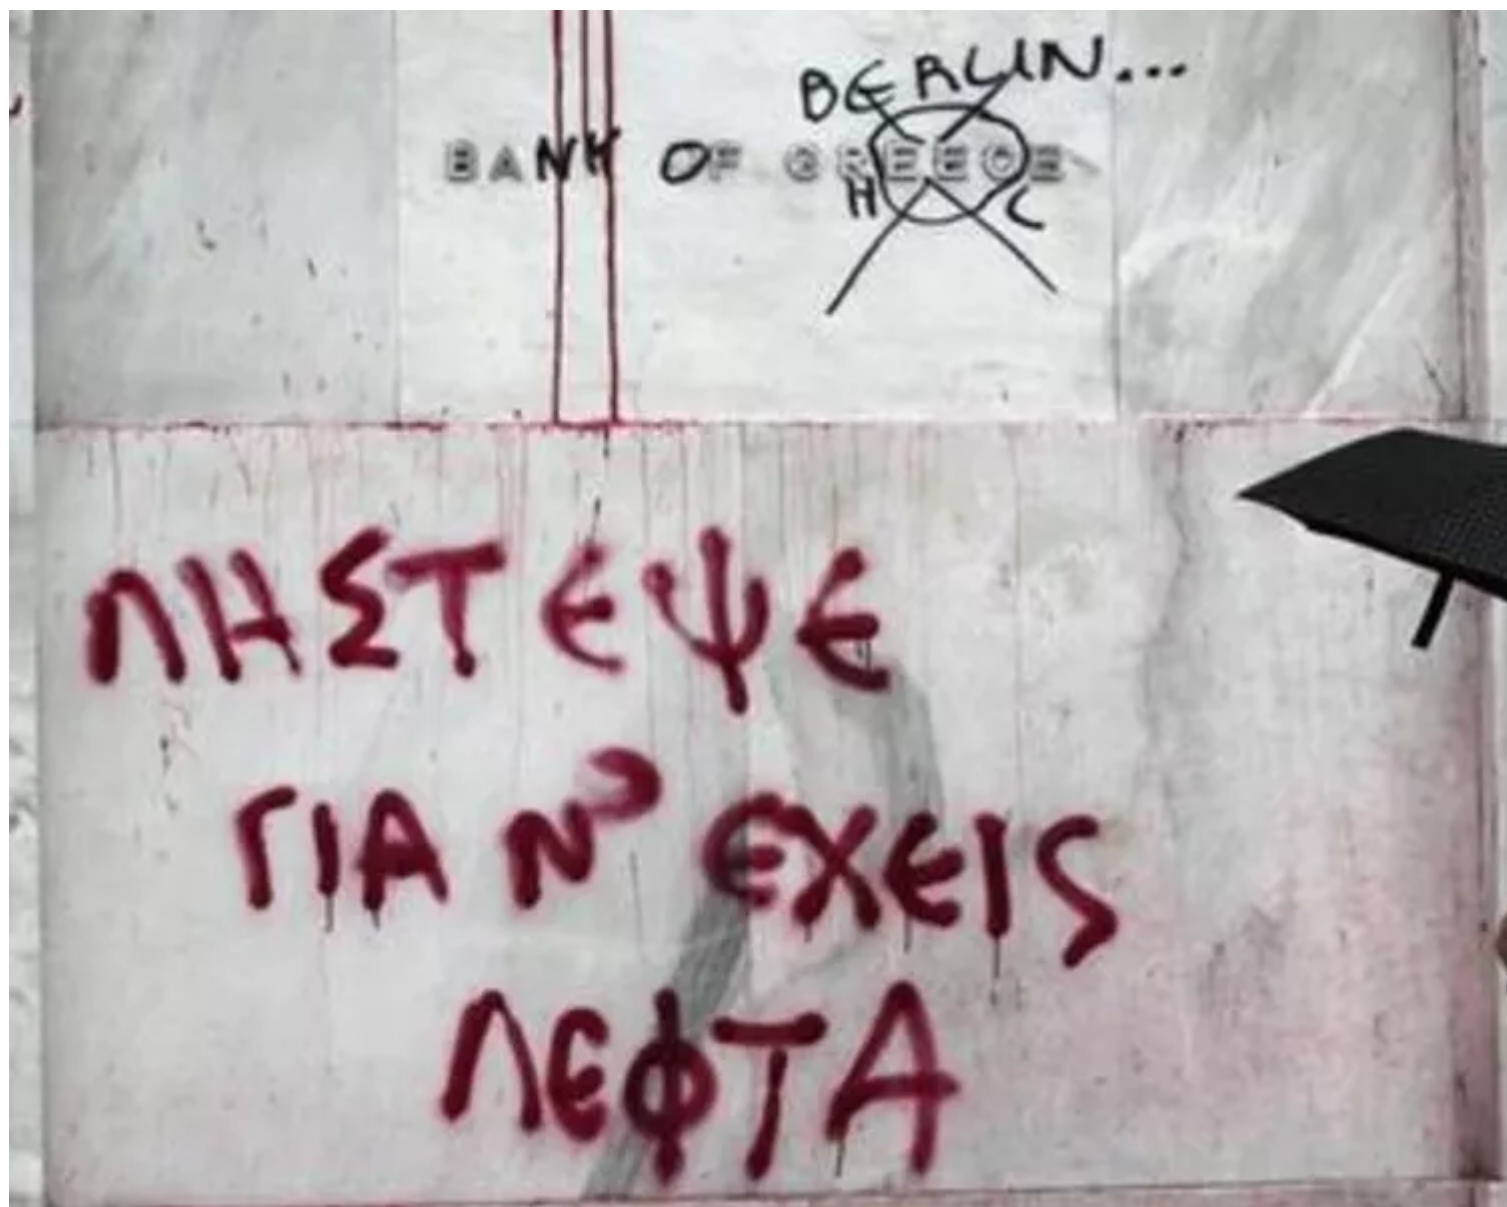 BERLIN...
BANK OF GREECE
H C
ΛΗΣΤΕΨΕ
ΓΙΑ Ν' ΕΧΕΙς
ΛΕΦΤΑ